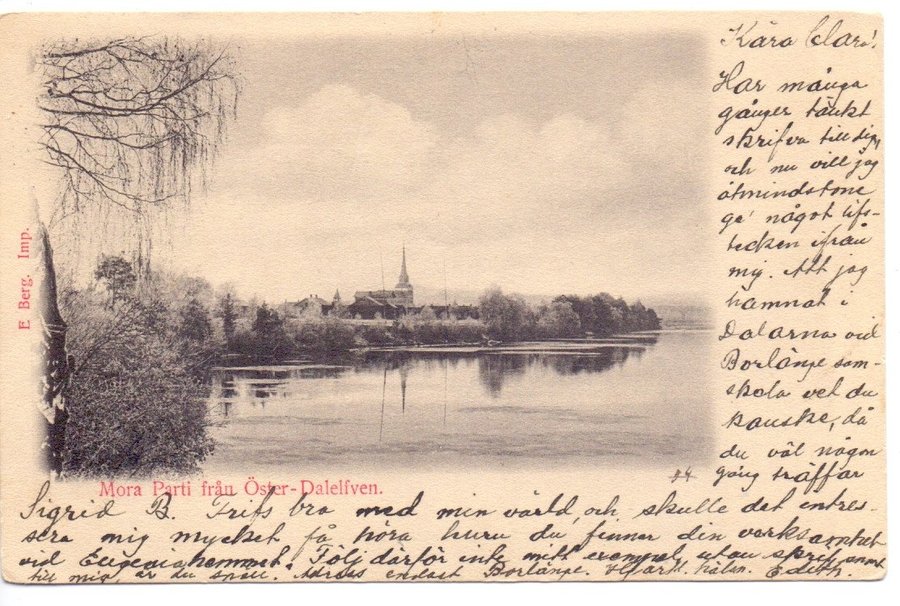 Kära Clara!
Har många
gånger tänkt
skrifva till dig,
och nu vill jag
åtminstone
ge något lifs-
tecken ifrån
mig. Att jag
hamnat i
Dalarna vid
Borlänge som-
skola vet du
kanske, då
du väl någon
gång träffar
Sigrid B. Trifs bra med min värld, och skulle det intres-
sera mig mycket få höra huru du finner din verksamhet
vid Eugeniahemmet. Följ därför inte mitt exempel, utan skrif snart
till mig är du snäll. Adress endast Borlänge. Hjärtl. häls. Edith.
Mora Parti från Öster-Dalelfven.
E Berg. Imp.